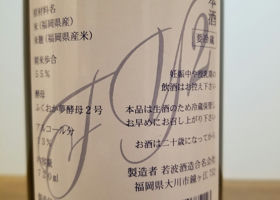 原材料名
米(福岡県産)
米麹(福岡県産米)
精米歩合
55%
酵母
ふくおか夢酵母2号
アルコール分
13%
内容量
720ml
本酒
要冷蔵
妊娠中や授乳期の
飲酒はお控え下さい
本品は生酒のため冷蔵保管し
お早めにお召し上がり下さい
お酒は二十歳になってから
製造者 若波酒造合名会社
福岡県大川市鐘ヶ江752